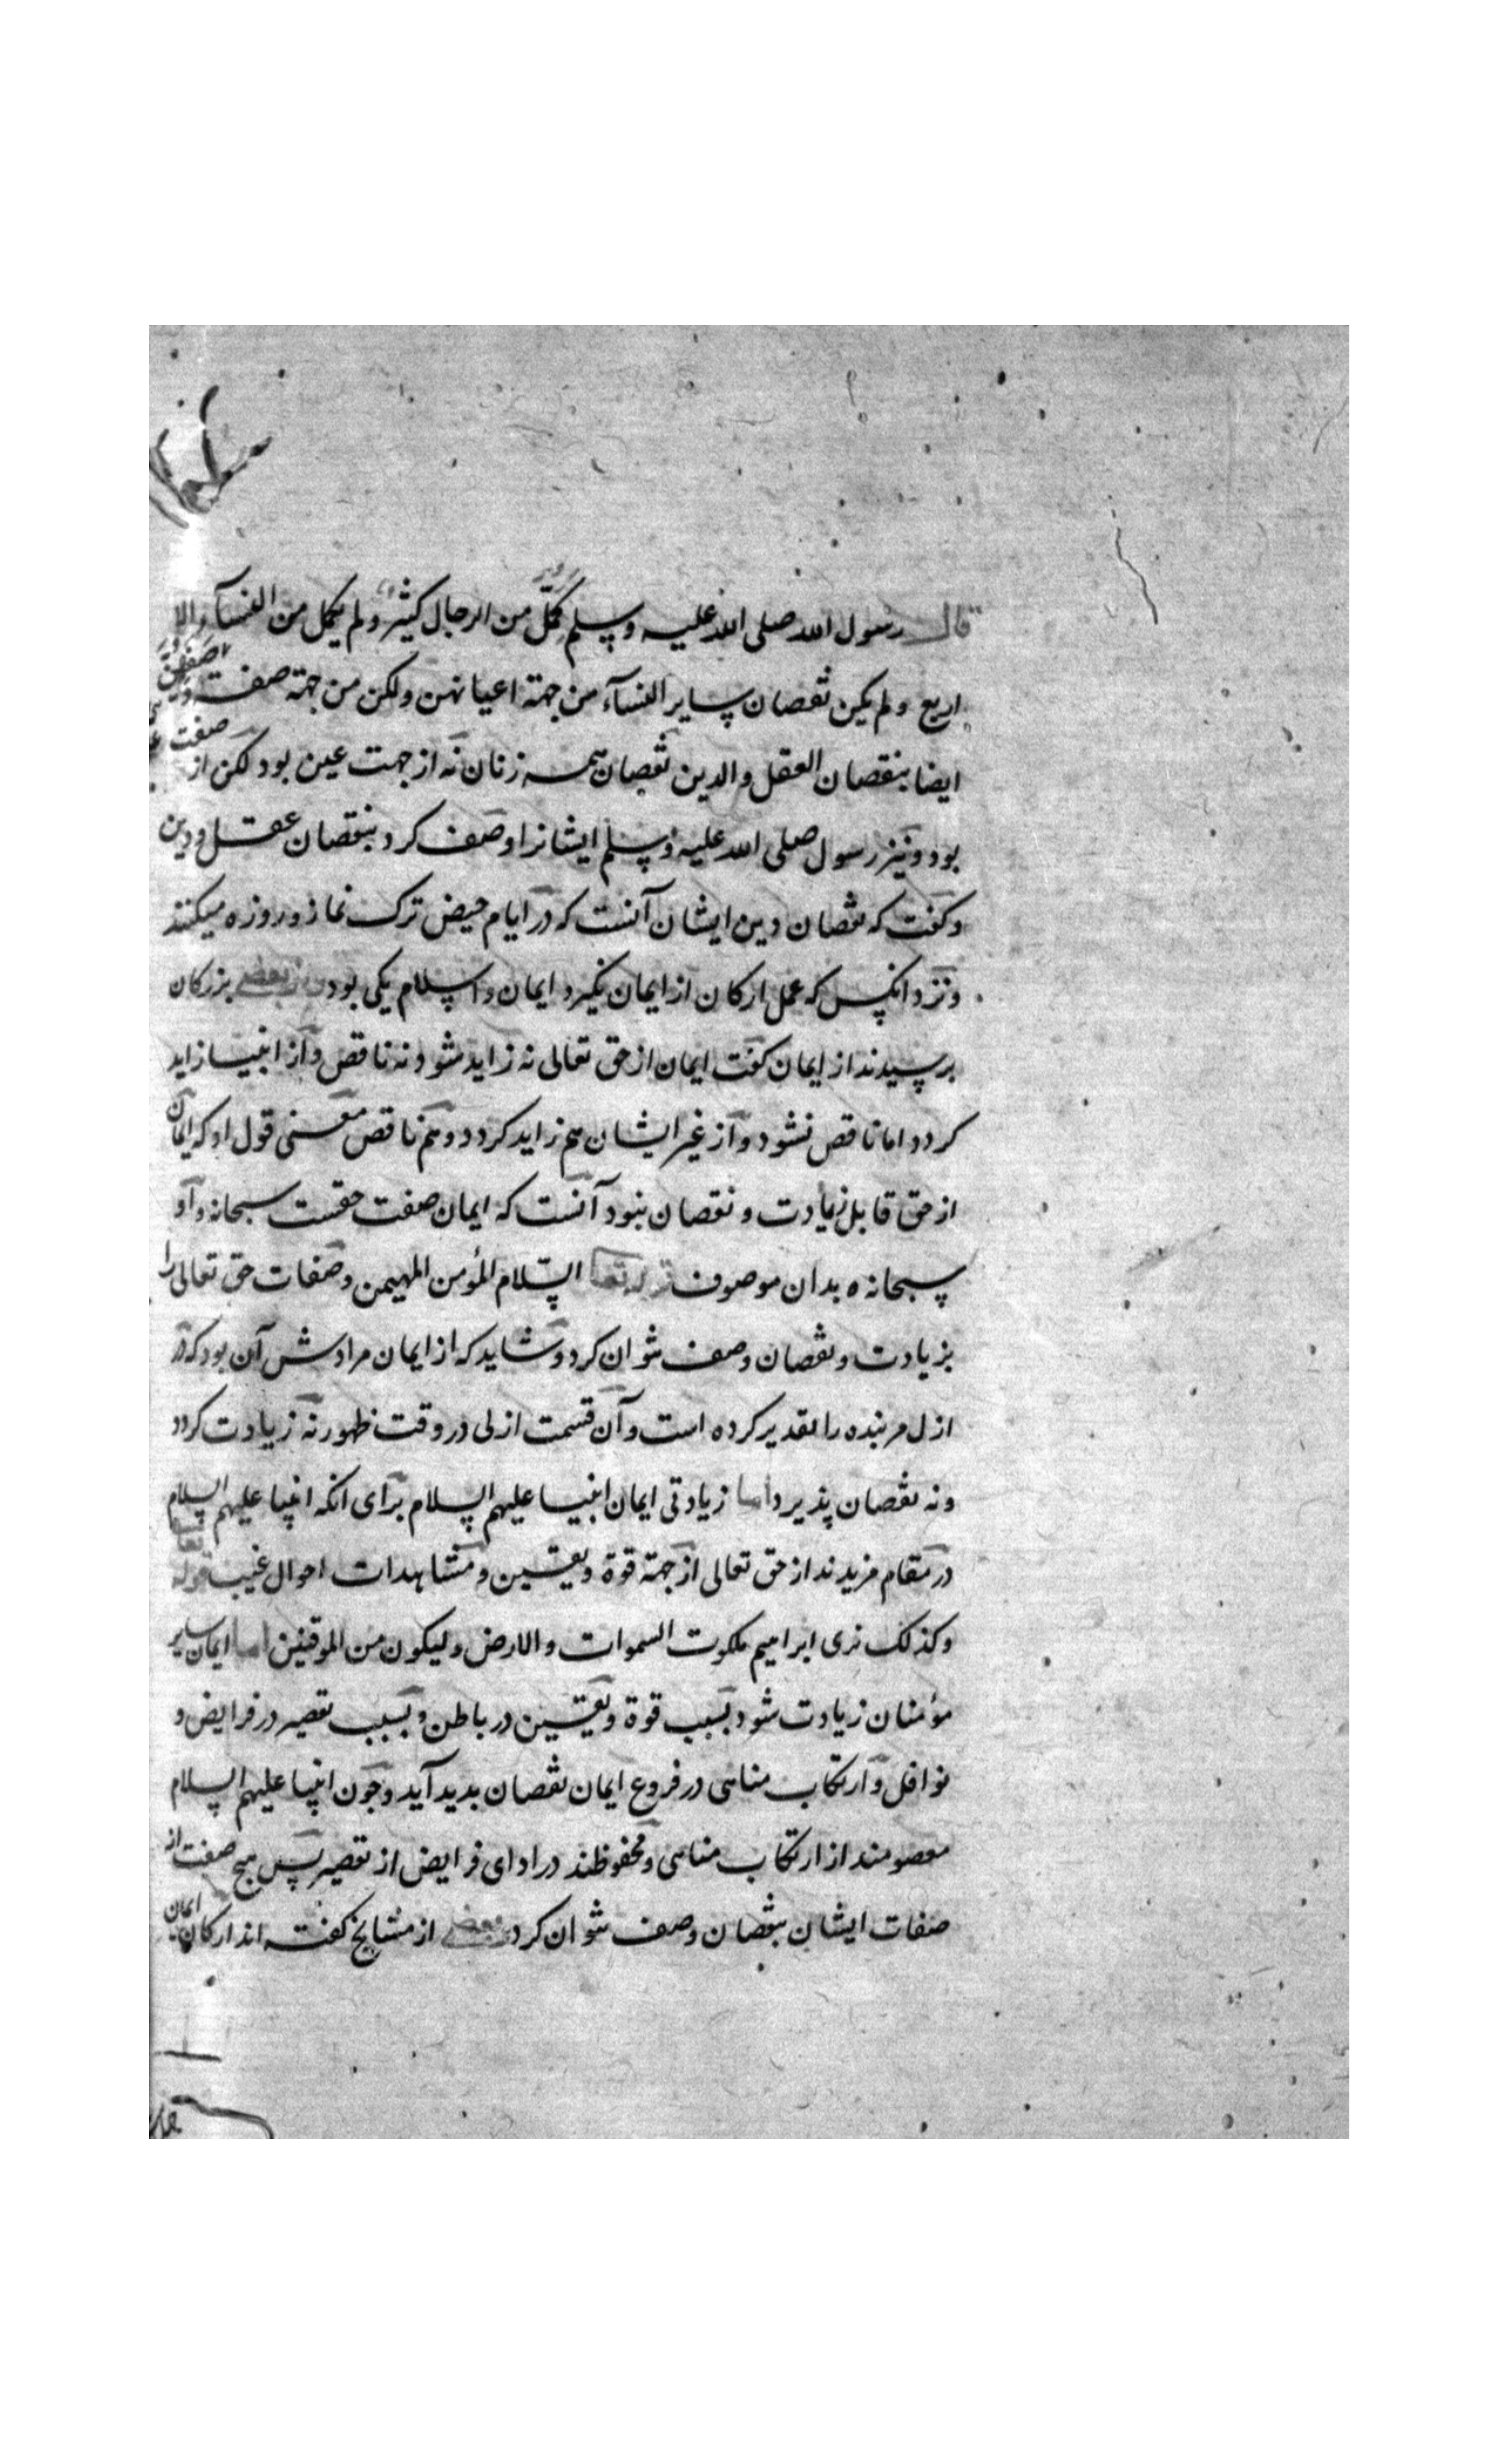 قال رسول الله صلی الله علیه وسلم کمل من الرجال کثیر ولم یکمل من النسآء الا
اربع ولم یکن نقصان سایر النسآء من جهة اعیانهن ولکن من جهة صفت
ایضا بنقصان العقل والدین نقصان همه زنان نه از جهت عین بود لکن از صفت
بود ونیز رسول صلی الله علیه وسلم ایشانرا وصف کرد بنقصان عقل ودین
وکفت که نقصان دین ایشان آنست که در ایام حیض ترک نماز وروزه میکنند
ونزد انکس که عمل ارکان از ایمان نکیرد ایمان واسلام یکی بود بعضی بزرکان
پرسیدند از ایمان کفت ایمان از حق تعالی نه زاید شود نه ناقص واز انبیا زاید
کردد اما ناقص نشود واز غیر ایشان هم زاید کردد وهم ناقص معنی قول او که ایمان
از حق قابل زیادت ونقصان نبود آنست که ایمان صفت حقست سبحانه واو
سبحانه بدان موصوف قوله تعا السلام المؤمن المهیمن وصفات حق تعالی را
بزیادت ونقصان وصف نتوان کرد وشاید که از ایمان مرادش آن بود که در
ازل مر بنده را تقدیر کرده است وآن قسمت ازلی در وقت ظهور نه زیادت کردد
ونه نقصان پذیرد اما زیادتی ایمان انبیا علیهم السلام برای انکه انبیا علیهم السلام
در مقام مزیدند از حق تعالی از جهة قوة ویقین ومشاهدات احوال غیب قوله تعا
وکذلک نری ابراهیم ملکوت السموات والارض ولیکون من الموقنین اما ایمان سایر
مؤمنان زیادت شود بسبب قوة ویقین در باطن وبسبب تقصیر در فرایض و
نوافل وارتکاب مناهی در فروع ایمان نقصان بدید آید وچون انبیا علیهم السلام
معصومند از ارتکاب مناهی ومحفوظند در ادای فرایض از تقصیر پس هیچ صفت از
صفات ایشان بنقصان وصف نتوان کرد بعضی از مشایخ کفته اند ارکان ایمان